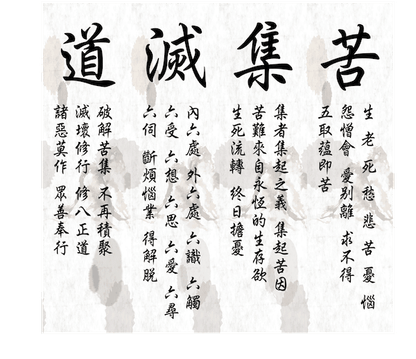 苦
生 老 死 愁 悲 苦 憂 惱
怨憎會 愛別離 求不得
五取蘊即苦
集
集者集起之義 集起苦因
苦難來自永恆的生存欲
生死流轉 終日擔憂
滅
內六處 外六處 六識 六觸
六受 六想 六思 六愛 六尋
六伺 斷煩惱業 得解脫
道
破解苦集 不再積聚
滅壞修行 修八正道
諸惡莫作 眾善奉行